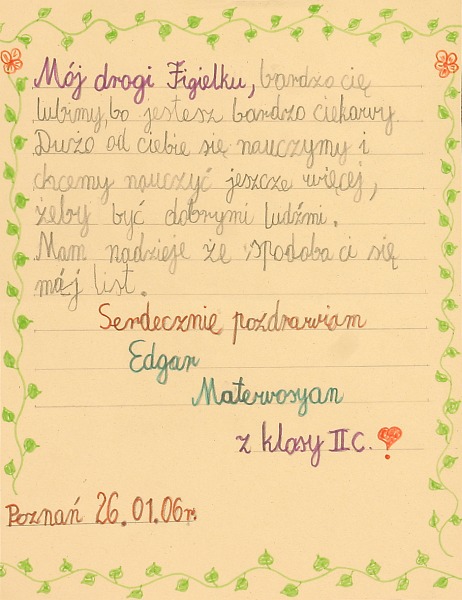 Mój drogi Figielku, bardzo cię
lubimy, bo jesteś bardzo ciekawy.
Dużo od ciebie się nauczymy i
chcemy nauczyć jeszcze więcej,
żeby być dobrymi ludźmi.
Mam nadzieje że spodoba ci się
mój list.
Serdecznie pozdrawiam
Edgar
Matewosyan
z klasy II c.
Poznań 26.01.06r.